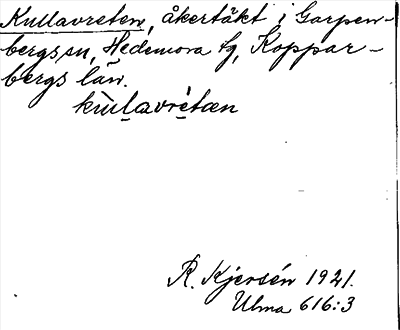 Kullavreten, åkertäkt i Garpen-
bergs sn, Hedemora tg, Koppar-
bergs län.
kùlavrètæn
R. Kjersén 1921.
Ulma 616:3